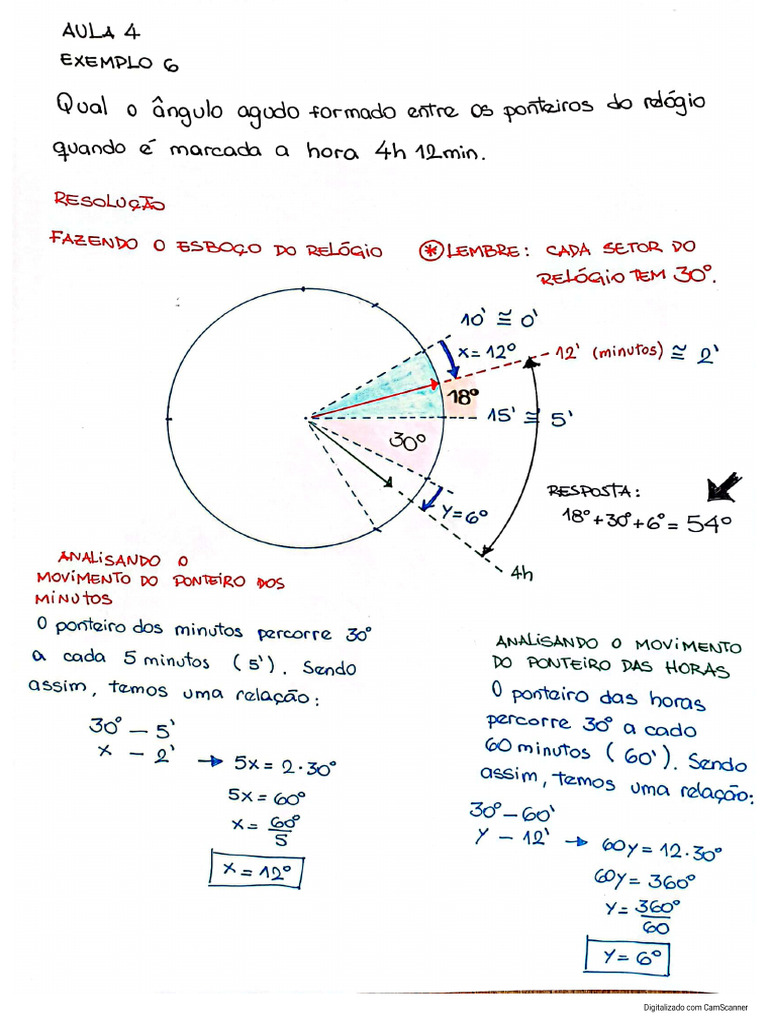 AULA 4
EXEMPLO 6
Qual o ângulo agudo formado entre os ponteiros do relógio
quando é marcada a hora 4h 12min.
RESOLUÇÃO
FAZENDO O ESBOÇO DO RELÓGIO
* LEMBRE: CADA SETOR DO
RELÓGIO TEM 30°.
10' ≅ 0'
X = 12°
12' (minutos) ≅ 2'
18°
15' ≅ 5'
30°
Y = 6°
4h
RESPOSTA:
18° + 30° + 6° = 54°
ANALISANDO O
MOVIMENTO DO PONTEIRO DOS
MINUTOS
O ponteiro dos minutos percorre 30°
a cada 5 minutos (5'). Sendo
assim, temos uma relação:
30° — 5'
x — 2' → 5x = 2·30°
5x = 60°
x = 60°/5
x = 12°
ANALISANDO O MOVIMENTO
DO PONTEIRO DAS HORAS
O ponteiro das horas
percorre 30° a cada
60 minutos (60'). Sendo
assim, temos uma relação:
30° — 60'
Y — 12' → 60Y = 12·30°
60Y = 360°
Y = 360°/60
Y = 6°
Digitalizado com CamScanner